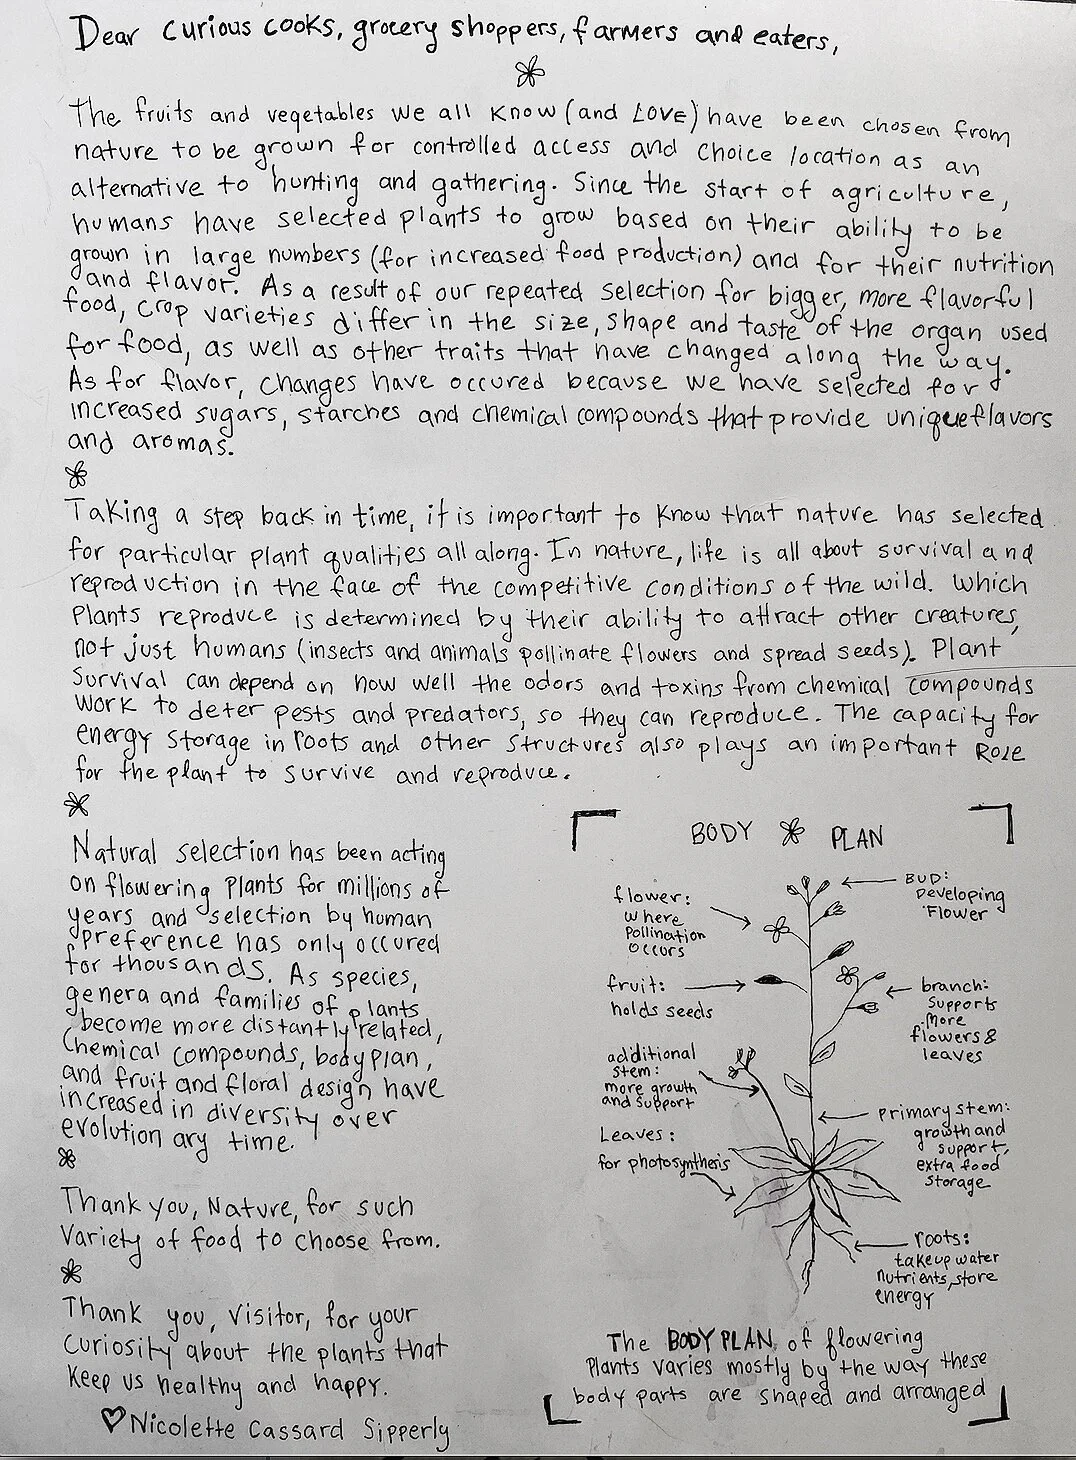 Dear curious cooks, grocery shoppers, farmers and eaters,
The fruits and vegetables we all know (and LOVE) have been chosen from
nature to be grown for controlled access and choice location as an
alternative to hunting and gathering. Since the start of agriculture,
humans have selected plants to grow based on their ability to be
grown in large numbers (for increased food production) and for their nutrition
and flavor. As a result of our repeated selection for bigger, more flavorful
food, crop varieties differ in the size, shape and taste of the organ used
for food, as well as other traits that have changed along the way.
As for flavor, changes have occured because we have selected for
increased sugars, starches and chemical compounds that provide unique flavors
and aromas.
Taking a step back in time, it is important to know that nature has selected
for particular plant qualities all along. In nature, life is all about survival and
reproduction in the face of the competitive conditions of the wild. Which
plants reproduce is determined by their ability to attract other creatures,
not just humans (insects and animals pollinate flowers and spread seeds). Plant
survival can depend on how well the odors and toxins from chemical compounds
work to deter pests and predators, so they can reproduce. The capacity for
energy storage in roots and other structures also plays an important Role
for the plant to survive and reproduce.
Natural selection has been acting
on flowering plants for millions of
years and selection by human
preference has only occured
for thousands. As species,
genera and families of plants
become more distantly related,
chemical compounds, body plan,
and fruit and floral design have
increased in diversity over
evolutionary time.
Thank you, Nature, for such
variety of food to choose from.
Thank you, visitor, for your
curiosity about the plants that
keep us healthy and happy.
♡ Nicolette Cassard Sipperly
BODY PLAN
BUD:
Developing
Flower
flower:
where
pollination
occurs
fruit:
holds seeds
branch:
supports
more
flowers &
leaves
additional
stem:
more growth
and support
primary stem:
growth and
support,
extra food
storage
Leaves:
for photosynthesis
roots:
take up water
nutrients, store
energy
The BODY PLAN of flowering
plants varies mostly by the way these
body parts are shaped and arranged